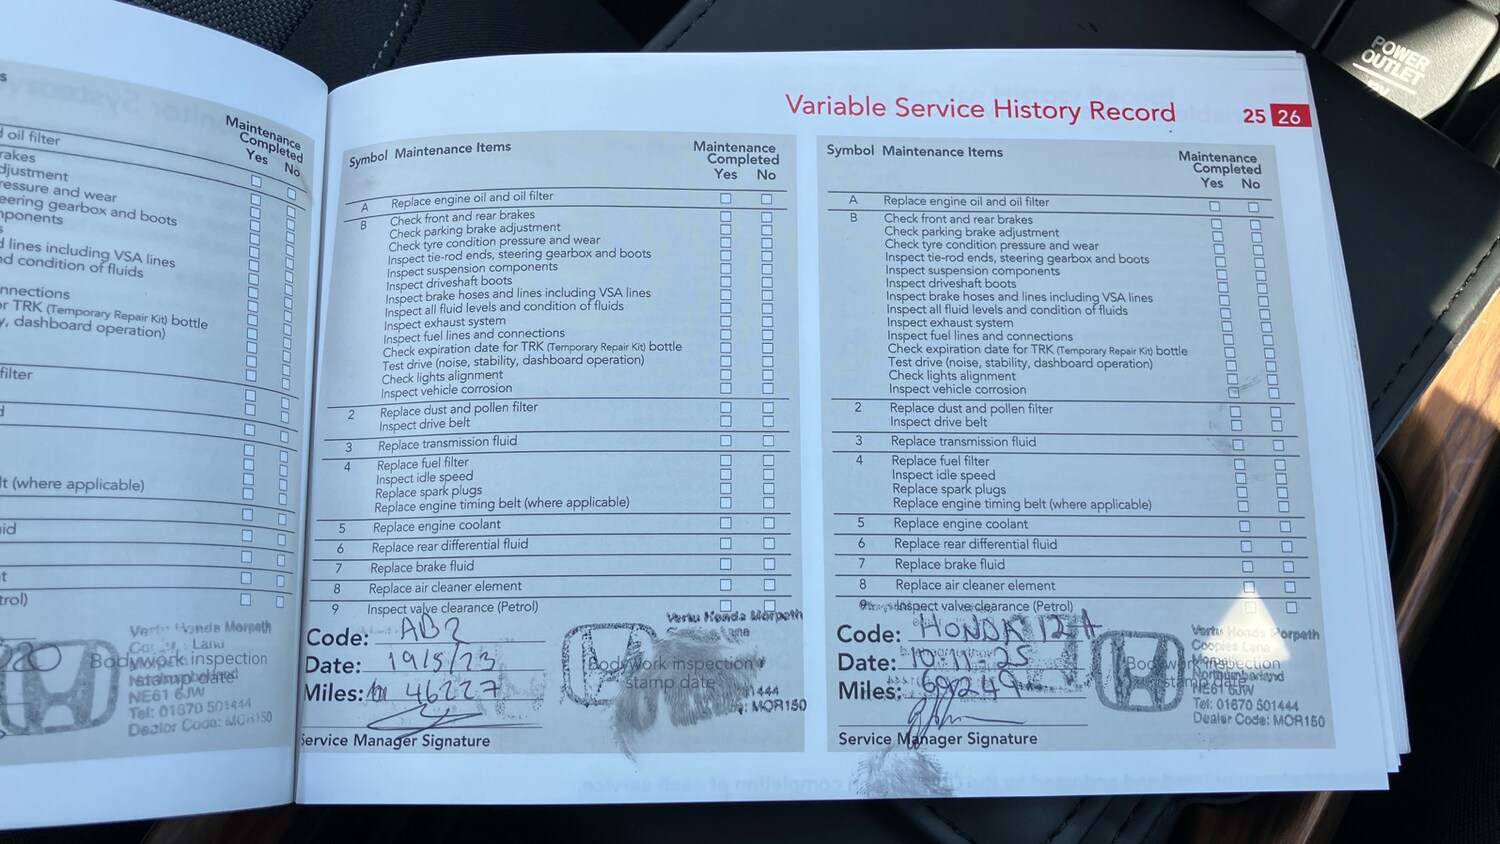 POWER
OUTLET
Variable Service History Record
25 26
Maintenance
Completed
Yes No
d oil filter
rakes
djustment
ressure and wear
eering gearbox and boots
nponents
d lines including VSA lines
nd condition of fluids
nnections
or TRK (Temporary Repair Kit) bottle
y, dashboard operation)
filter
lt (where applicable)
uid
trol)
Bodywork inspection
stamp date
Vertu Honda Morpeth
Lane
NE61 6JW
Tel: 01670 501444
Dealer Code: MOR150
Symbol Maintenance Items Maintenance
Completed
Yes No
A Replace engine oil and oil filter
B Check front and rear brakes
Check parking brake adjustment
Check tyre condition pressure and wear
Inspect tie-rod ends, steering gearbox and boots
Inspect suspension components
Inspect driveshaft boots
Inspect brake hoses and lines including VSA lines
Inspect all fluid levels and condition of fluids
Inspect exhaust system
Inspect fuel lines and connections
Check expiration date for TRK (Temporary Repair Kit) bottle
Test drive (noise, stability, dashboard operation)
Check lights alignment
Inspect vehicle corrosion
2 Replace dust and pollen filter
Inspect drive belt
3 Replace transmission fluid
4 Replace fuel filter
Inspect idle speed
Replace spark plugs
Replace engine timing belt (where applicable)
5 Replace engine coolant
6 Replace rear differential fluid
7 Replace brake fluid
8 Replace air cleaner element
9 Inspect valve clearance (Petrol)
Code: AB2
Date: 19/5/23
Miles: 46227
Service Manager Signature
Bodywork inspection
stamp date
Vertu Honda Morpeth
Lane
444
: MOR150
Symbol Maintenance Items Maintenance
Completed
Yes No
A Replace engine oil and oil filter
B Check front and rear brakes
Check parking brake adjustment
Check tyre condition pressure and wear
Inspect tie-rod ends, steering gearbox and boots
Inspect suspension components
Inspect driveshaft boots
Inspect brake hoses and lines including VSA lines
Inspect all fluid levels and condition of fluids
Inspect exhaust system
Inspect fuel lines and connections
Check expiration date for TRK (Temporary Repair Kit) bottle
Test drive (noise, stability, dashboard operation)
Check lights alignment
Inspect vehicle corrosion
2 Replace dust and pollen filter
Inspect drive belt
3 Replace transmission fluid
4 Replace fuel filter
Inspect idle speed
Replace spark plugs
Replace engine timing belt (where applicable)
5 Replace engine coolant
6 Replace rear differential fluid
7 Replace brake fluid
8 Replace air cleaner element
9 Inspect valve clearance (Petrol)
Code: HONDA 12 A
Date: 10-11-25
Miles:
Service Manager Signature
Bodywork inspection
stamp date
Vertu Honda Morpeth
Coopies Lane
Northumberland
NE61 6JW
Tel: 01670 501444
Dealer Code: MOR150